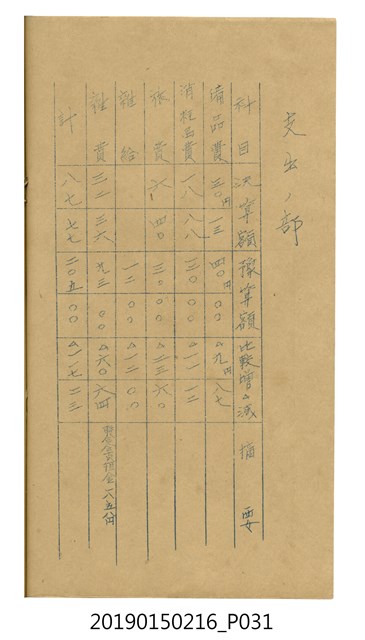 支出ノ部
科目 決算額 豫算額 比較増△減 摘要
備品費 三〇円 一三 四〇円 〇〇 △九円 八七
消耗品費 一八 八八 三〇 〇〇 △一一 一二
旅費 六 四〇 三〇 〇〇 △二三 六〇
雜給 一二 〇〇 △一二 〇〇
雜費 三二 三六 九三 〇〇 △六〇 六四 一八五
計 八七 七七 二〇五 〇〇 △一一七 二三
20190150216_P031